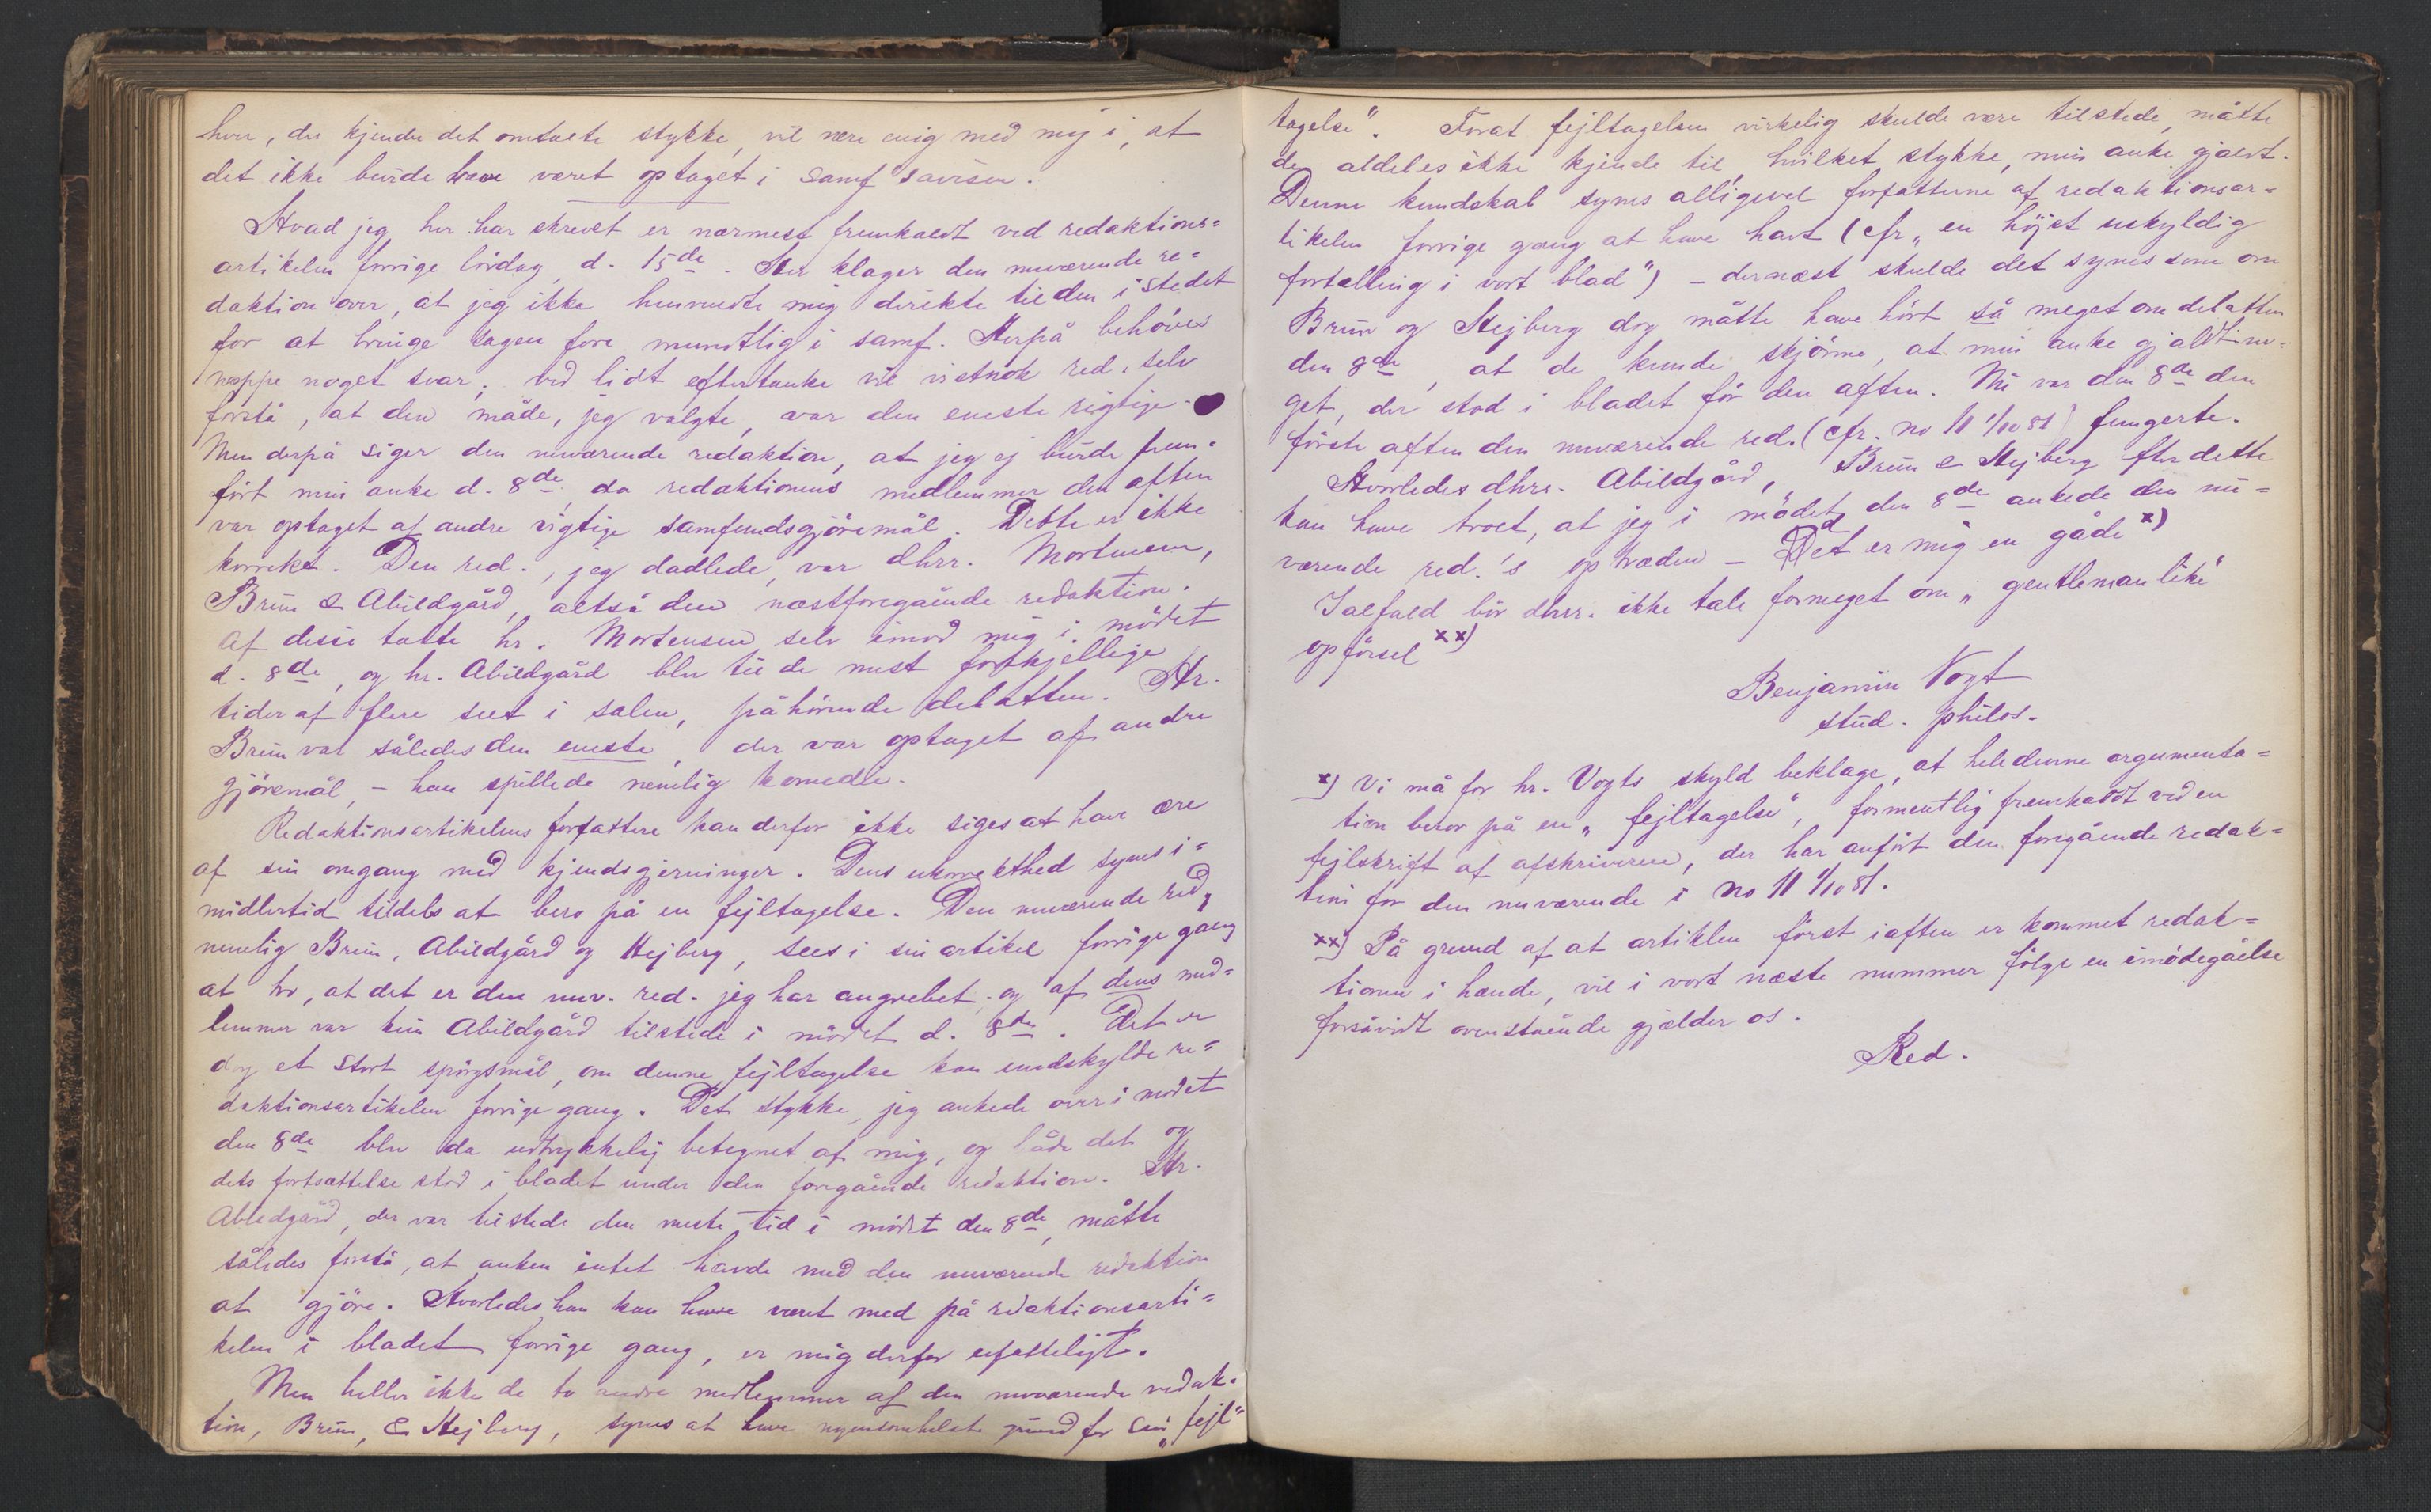 hver, der kjender det omtalte stykke, vil være enig med mig i, at
det ikke burde have været optaget i samf'savisen.
Hvad jeg her har skrevet er nærmest fremkaldt ved redaktions=
artikelen forrige lördag d. 15de. Her klager den nuværende re=
daktion over, at jeg ikke henvendte mig direkte til den istedet
for at bringe sagen fore mundtlig i samf. Herpå behöves
neppe noget svar; ved lidt eftertanke vil vistnok red. selv
forstå, at den måde, jeg valgte, var den eneste rigtige.
Men derpå siger den nuværende redaktion, at jeg ej burde frem=
fört min anke d. 8de, da redaktionens medlemmer den aften
var optaget af andre vigtige samfundsgjöremål. Dette er ikke
korrekt. Den red., jeg dadlede, var dhrr. Mortensen,
Brun & Abildgård, altså den næstforegående redaktion.
Af disse talte hr. Mortensen selv imod mig i mödet
d. 8de, og hr. Abildgård blev til de mest forskjellige
tider af flere seet i salen, påhörende debatten. Hr.
Brun var således den eneste, der var optaget af andre
gjöremål, – han spillede nemlig komedie.
Redaktionsartikelens forfattere kan derfor ikke siges at have ære
af sin omgang med kjendsgjerninger. Dens ukorrekthed synes i=
midlertid tildels at bero på en fejltagelse. Den nuværende red,
nemlig Brun, Abildgård og Hejberg, sees i sin artikel forrige gang
at tro, at det er den nuv. red. jeg har angrebet, og af dens med=
lemmer var kun Abildgård tilstede i mödet d. 8de. Det er
dog et stort spörgsmål, om denne fejltagelse kan undskylde re=
daktionsartikelen forrige gang. Det stykke, jeg ankede over i mödet
den 8de blev da udtrykkelig betegnet af mig, og både det og
dets fortsættelse stod i bladet under den foregående redaktion. Hr.
Abildgård, der var tilstede den meste tid i mödet den 8de, måtte
således forstå, at anken intet havde med den nuværende redaktion
at gjöre. Hvorledes han kan have været med på redaktionsarti=
kelen i bladet forrige gang, er mig derfor ufatteligt.
Men heller ikke de to andre medlemmer af den nuværende redak=
tion, Brun, & Hejberg, synes at have nogensomhelst grund for sin „fejl=
tagelse". Forat fejltagelsen virkelig skulde være tilstede, måtte
de aldeles ikke kjende til, hvilket stykke, min anke gjaldt.
Denne kundskab synes alligevel forfatterne af redaktionsar=
tikelen forrige gang at have havt (cfr „en höjst uskyldig
fortælling i vort blad") – dernæst skulde det synes som om
Brun og Hejberg dog måtte have hört så meget om debatten
den 8de, at de kunde skjönne, at min anke gjaldt no=
get, der stod i bladet för den aften. Nu var den 8de den
förste aften den nuværende red. (cfr. no 11 1/10 81) fungerte.
Hvorledes dhrr. Abildgård, Brun & Hejberg efter dette
kan have troet, at jeg i mödet den 8de ankede den nu=
værende red.'s optræden – Det er mig en gåde x)
Ialfald bör dhrr. ikke tale formeget om „gentlemanlike"
opförsel xx)
Benjamin Vogt
stud. philos.
x) Vi må for hr. Vogts skyld beklage, at hele denne argumenta=
tion beror på en „fejltagelse", formentlig fremkaldt ved en
fejlskrift af afskriveren, der har anfört den foregående redak=
tion for den nuværende i no 11 1/10 81.
xx) På grund af at artiklen först iaften er kommet redak=
tionen i hænde, vil i vort næste nummer fölge en imödegåelse
forsåvidt ovenstående gjælder os.
Red.